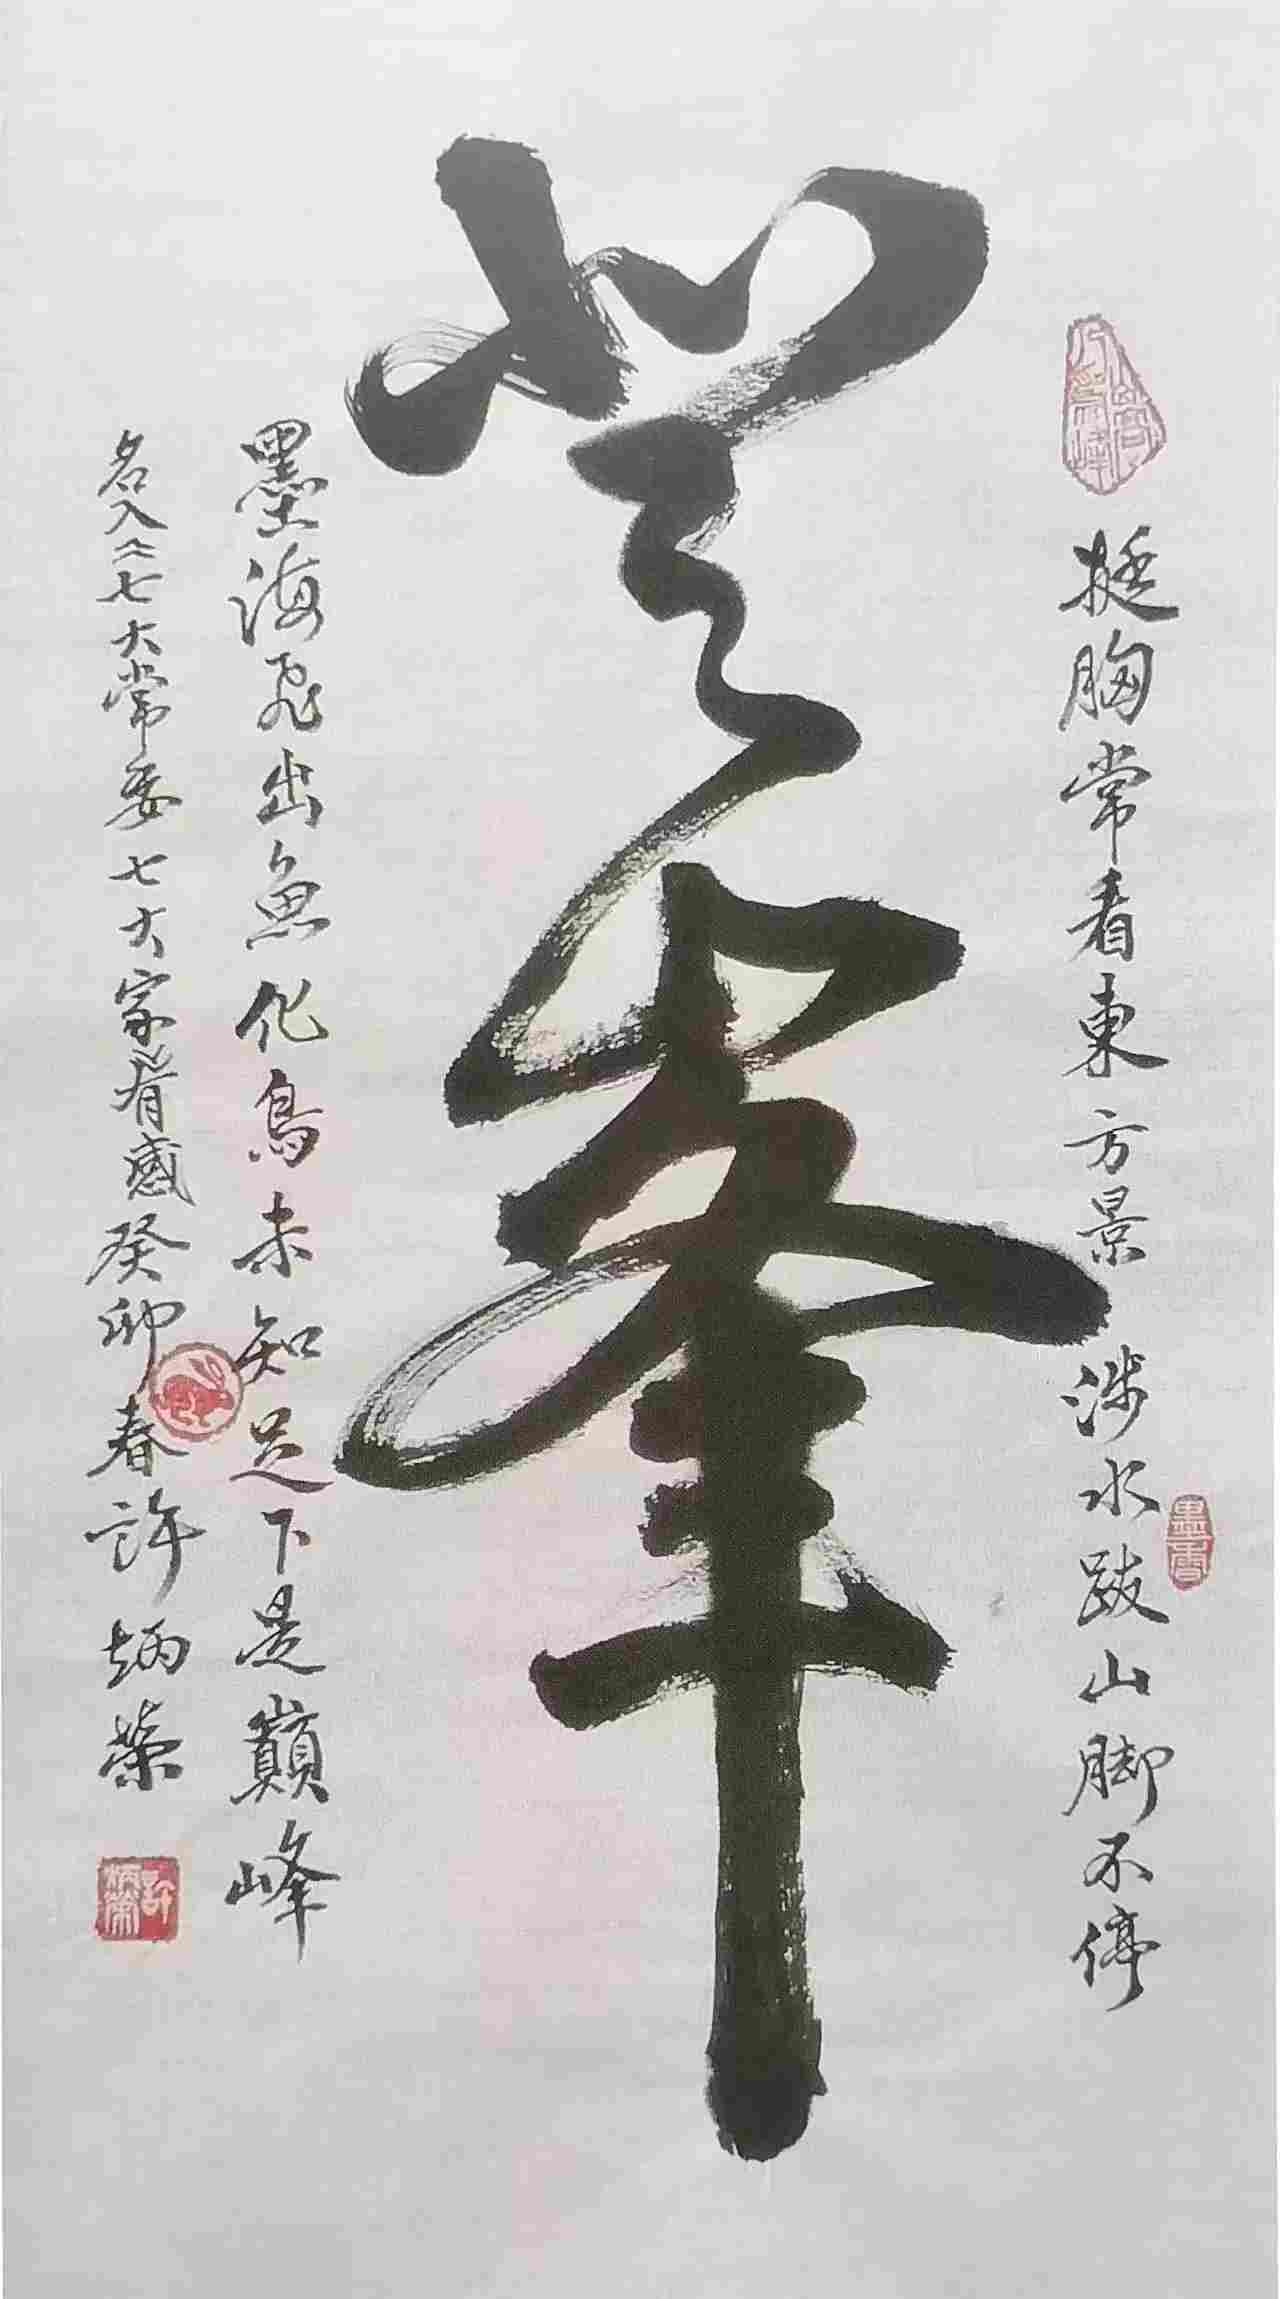 挺胸常看東方景 涉水跋山脚不停
登峯
墨海飛出魚化鳥未知足下是巔峰
名入二七大常委七大家有感癸卯春許炳榮
山高人為峰
墨香
許炳榮